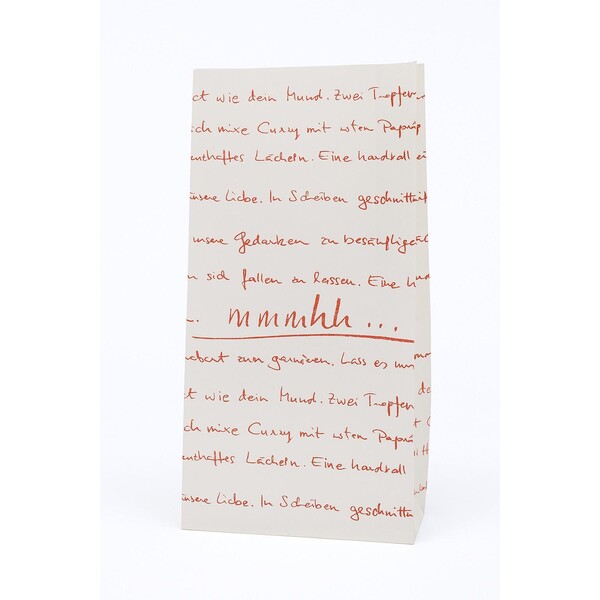 ct wie dein Mund. Zwei Tropfen
ich mixe Curry mit roten Paprip
enthaftes Lächeln. Eine handvoll
unsere Liebe. In Scheiben geschnitten
unsere Gedanken zu besänftigen
n sich fallen zu lassen. Eine H
. mmmhh...
zu garnieren. Lass es
t wie dein Mund. Zwei Tropfen
ch mixe Curry mit roten Papri
enthaftes Lächeln. Eine handvoll
unsere Liebe. In Scheiben geschnitten